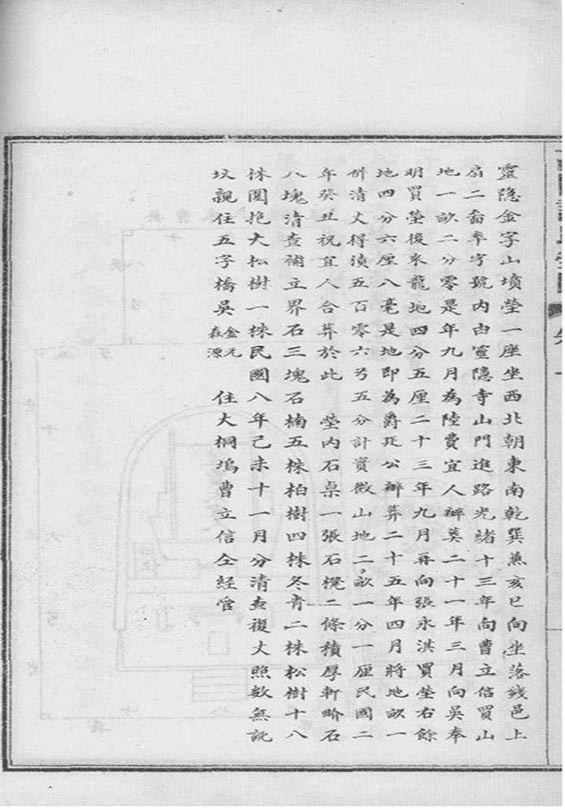 靈隱金字山墳塋一座坐西北朝東南乾巽兼亥巳向坐落錢邑上
扇二畨率字號內由靈隱寺山門進路光緒十三年向曹立信買山
地一畝二分零是年九月為陸費宜人辦葬二十一年三月向吳奉
明買塋後來龍地四分五厘二十三年九月再向張永洪買塋右餘
地四分六厘八毫是地即為爵廷公辦葬二十五年四月將地畝一
併清丈得漬五百零六弓五分計實徵山地二畝一分一厘民國二
年癸丑祝宜人合葬於此　塋內石桌一張石櫈二條積厚軒畍石
八塊清查補立界石三塊石楠五株柏樹四株冬青二株松樹十八
株圍抱大松樹一株民國八年己未十一月分清查復丈照數無訛
坟親住五字橋吳金元森源　住大桐塢曹立信仝經管